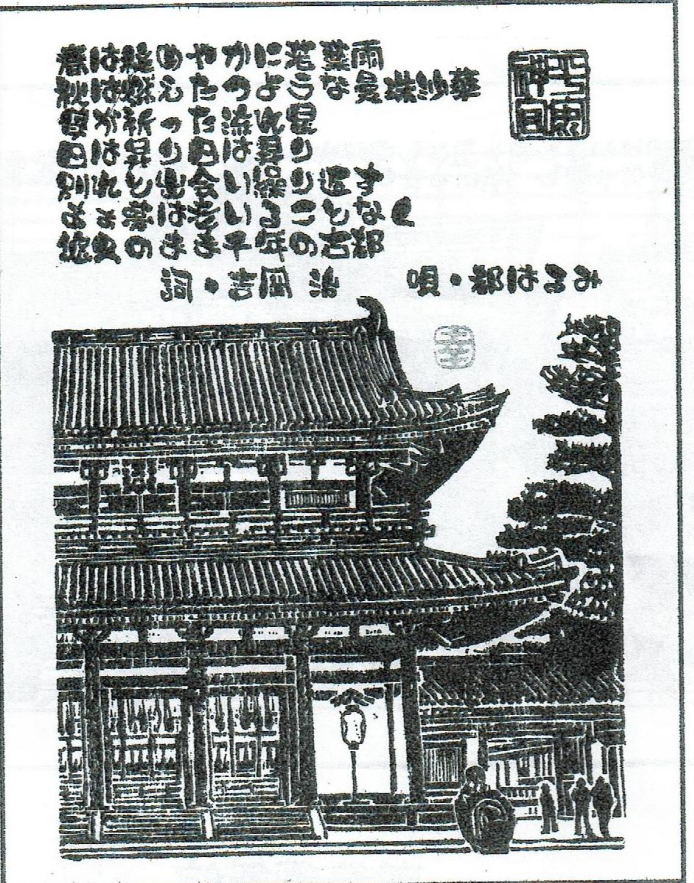 春は艶めやかに葉雨
秋は燃えたつような曼珠沙華
が祈った流れ星
日は昇り日は翳り
別れと出会い繰り返す
ああは老いることなく
悠久のまま千年の古都
詞・吉岡 治 唄・都はるみ